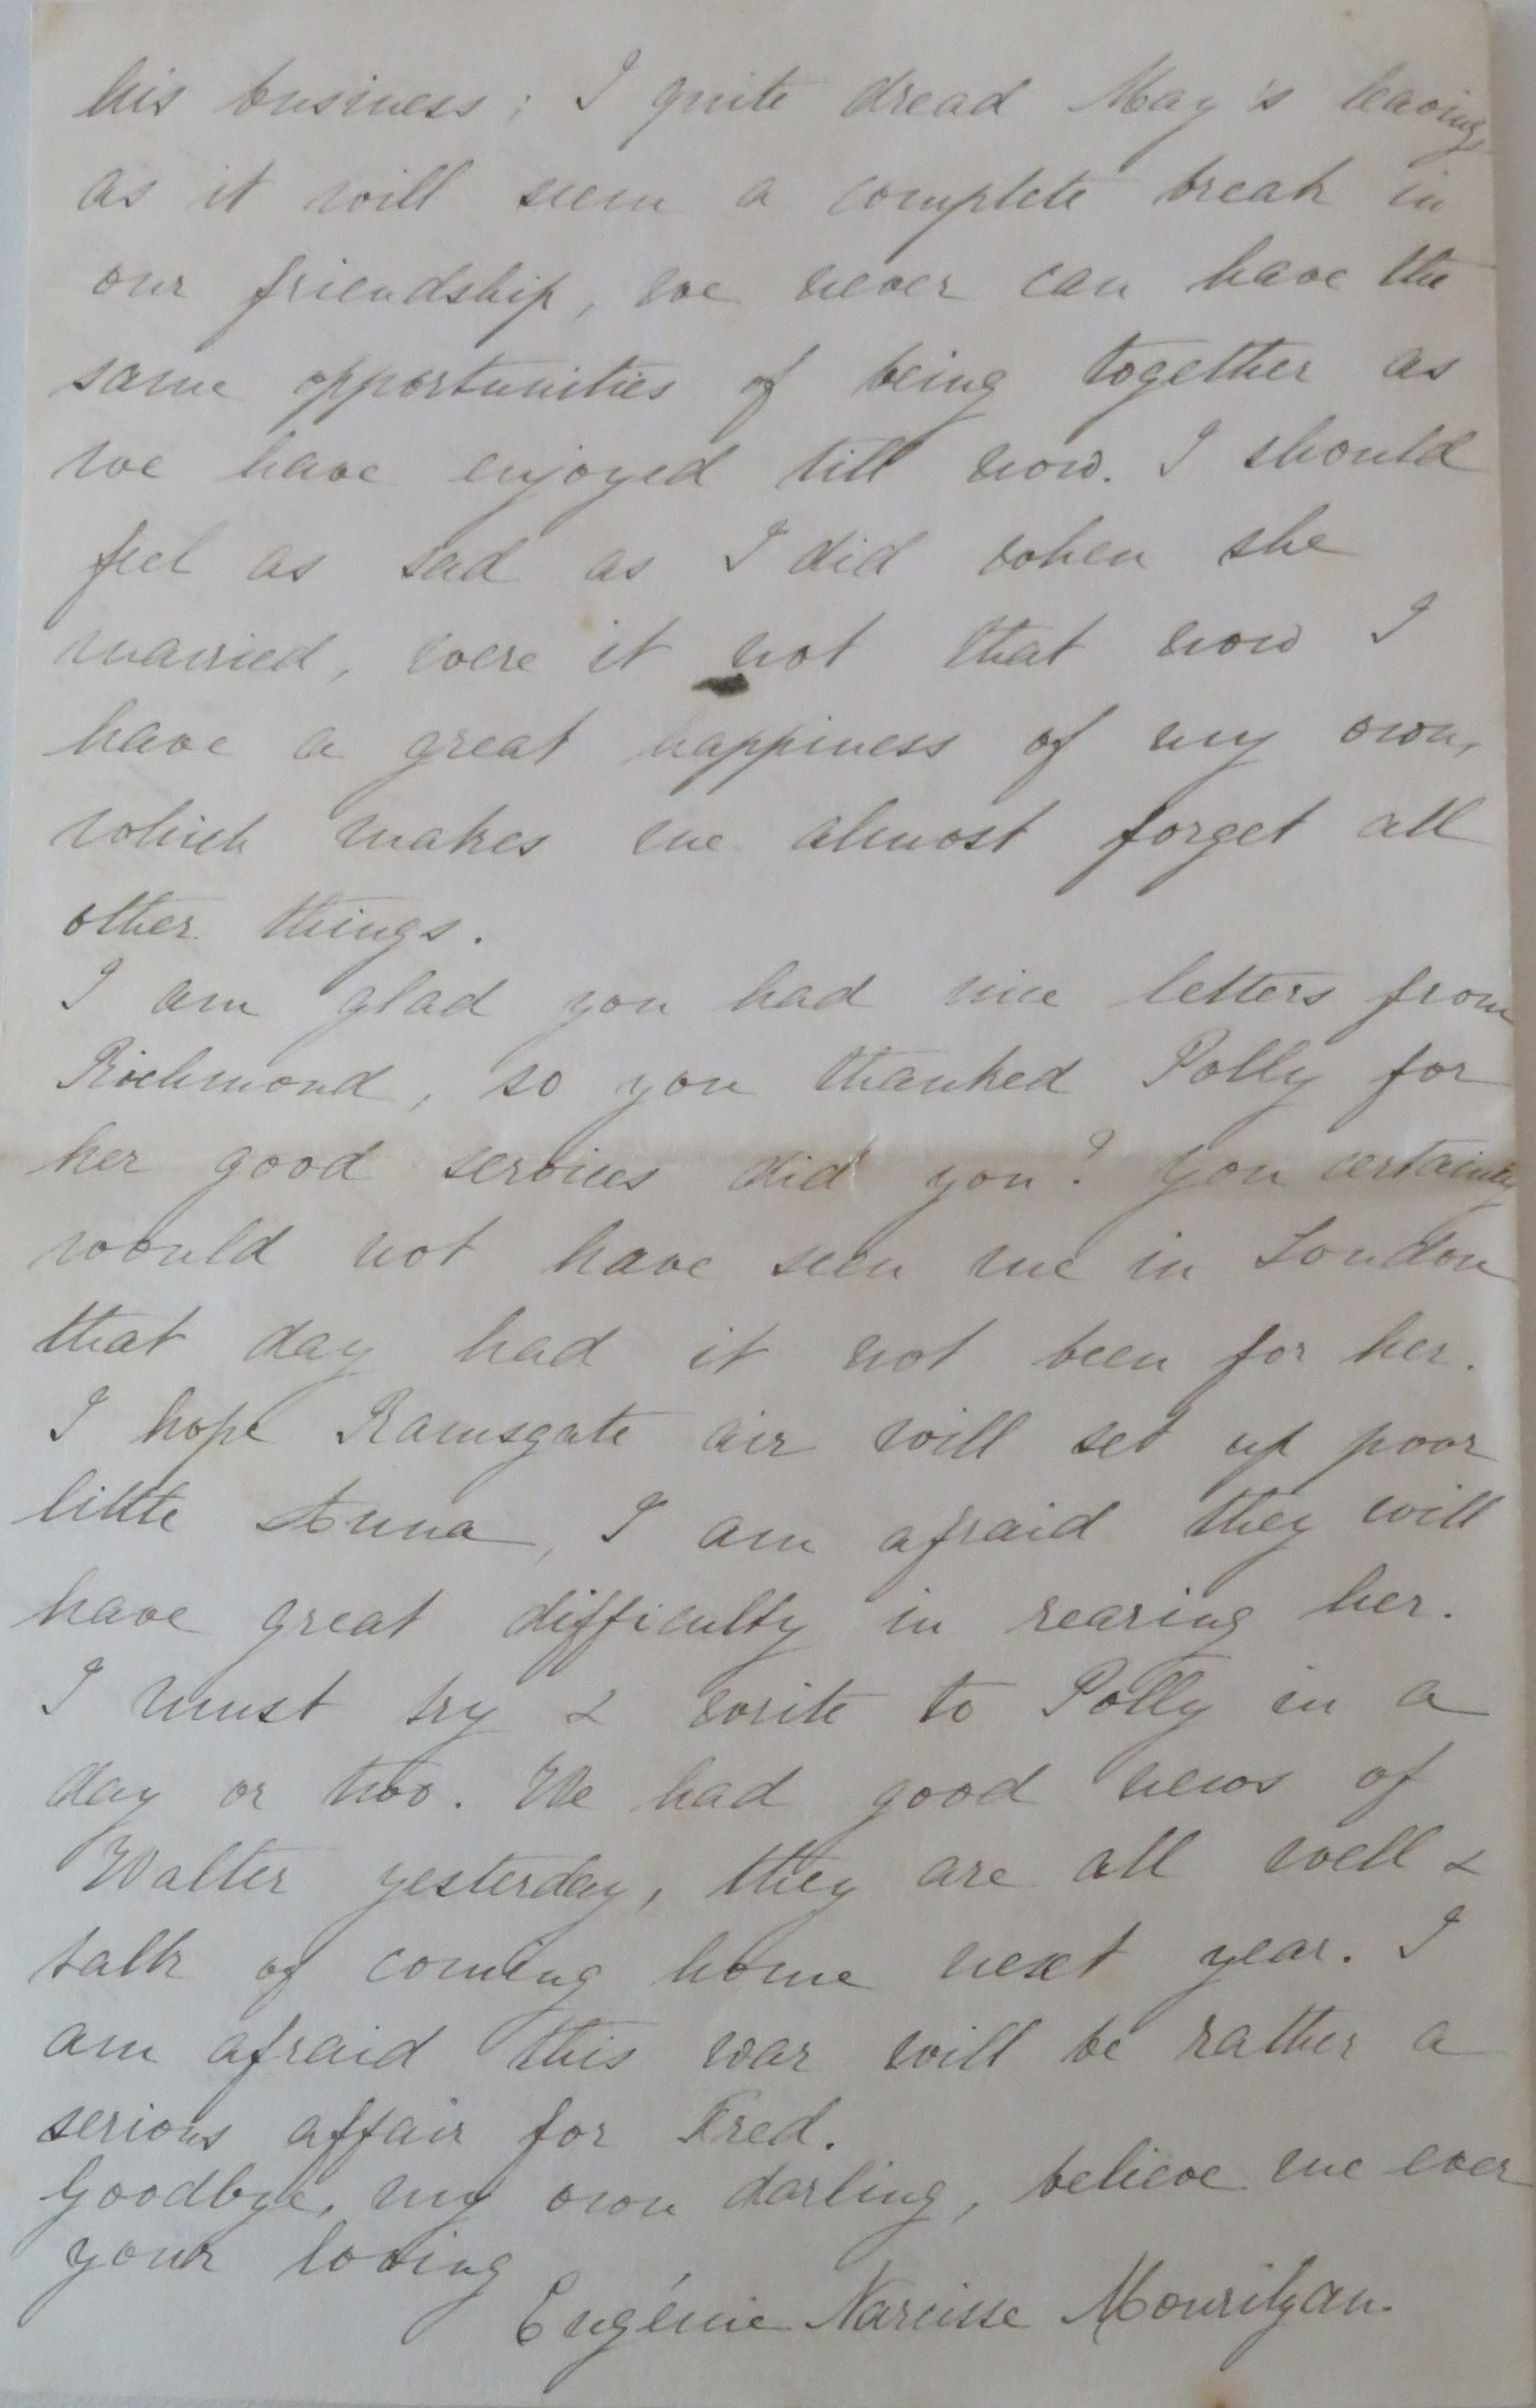 his business; I quite dread May's leaving
as it will seem a complete break in
our friendship, we never can have the
same opportunities of being together as
we have enjoyed till now. I should
feel as sad as I did when she
married, were it not that now I
have a great happiness of my own,
which makes me almost forget all
other things.
I am glad you had nice letters from
Richmond, so you thanked Polly for
her good services did you? You certainly
would not have seen me in London
that day had it not been for her.
I hope Ramsgate air will set up poor
little Anna, I am afraid they will
have great difficulty in rearing her.
I must try & write to Polly in a
day or two. We had good news of
Walter yesterday, they are all well &
talk of coming home next year. I
am afraid this war will be rather a
serious affair for Fred.
Goodbye, my own darling, believe me ever
your loving
Eugénie Narcisse Mourilyan.